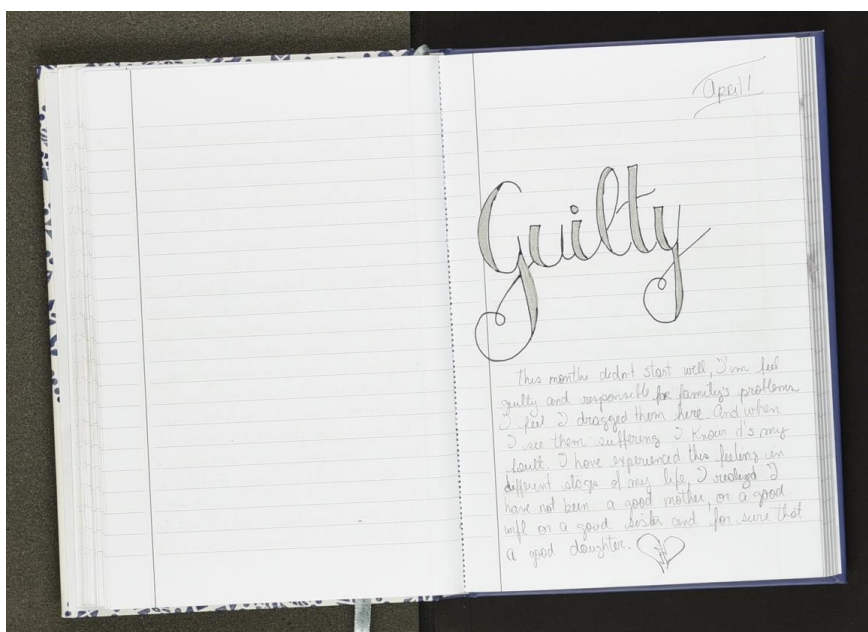 April 1
Guilty
This months didn't start well, I'm feel
guilty and responsible for family's problems
I feel I dragged them here. And when
I see them suffering I know it's my
fault. I have experienced this feeling in
different stages of my life, I realized I
have not been a good mother, or a good
wife or a good sister and for sure that
a good daughter.